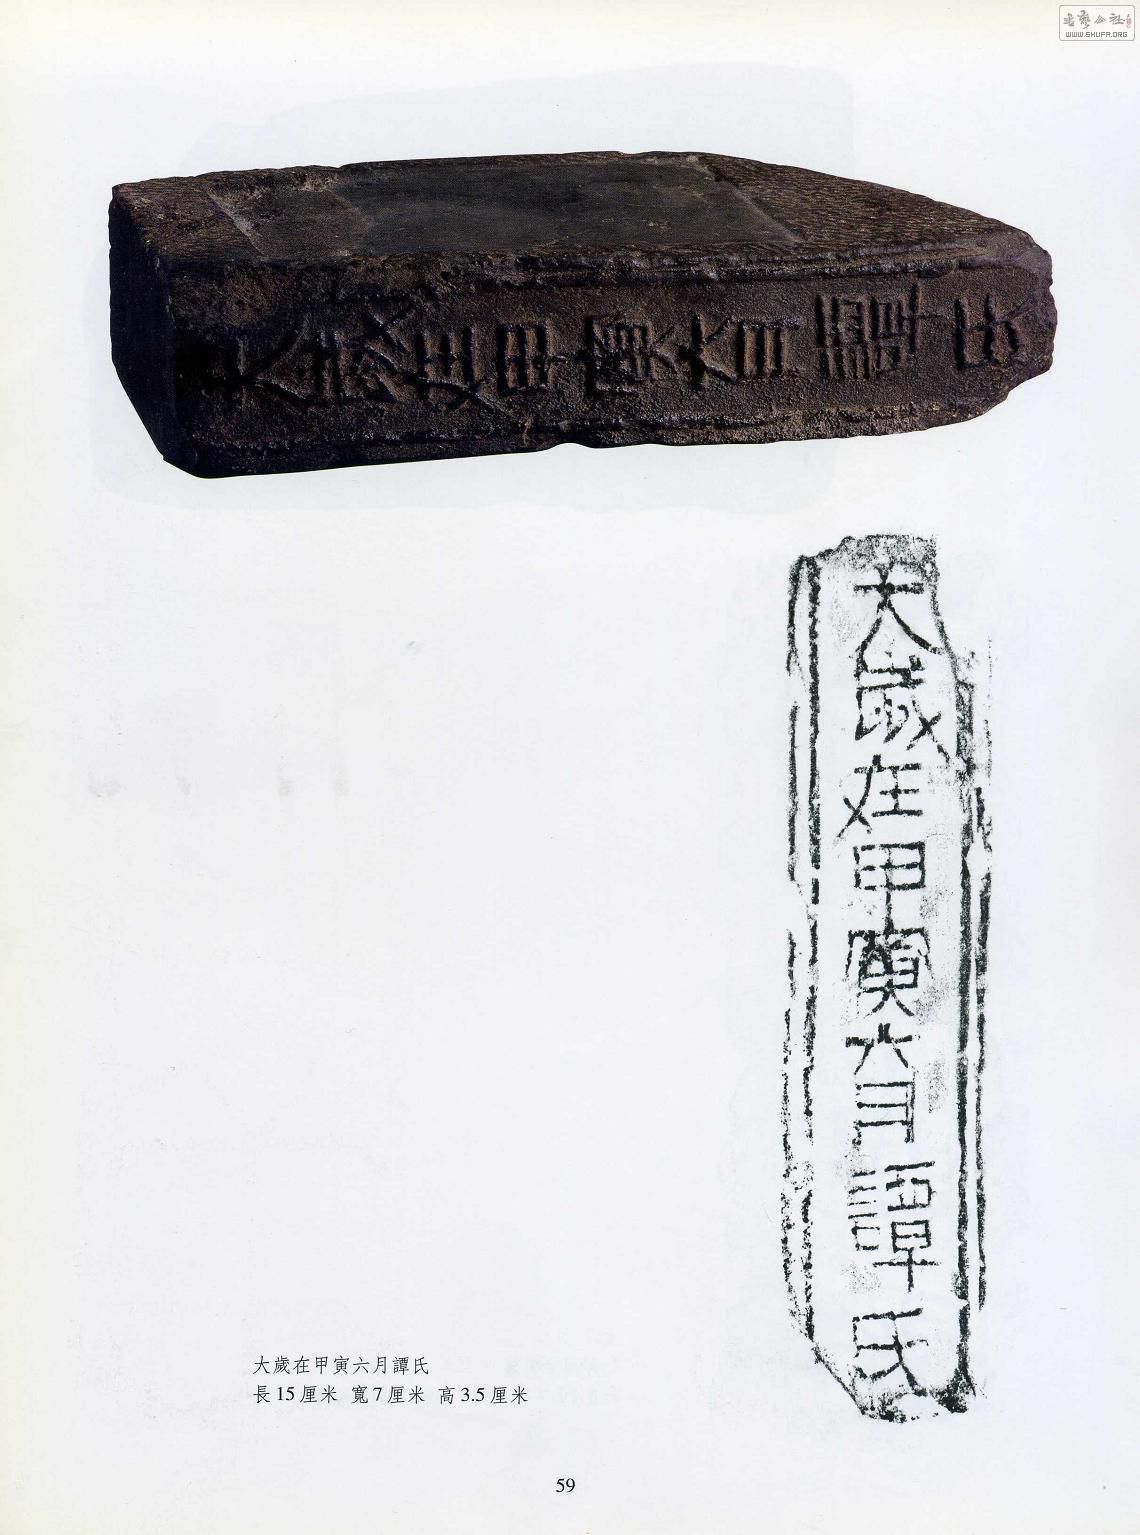 書藝公社
WWW.SHUFA.ORG
大歲在甲寅六月譚氏
大歲在甲寅六月譚氏
大歲在甲寅六月譚氏
長15厘米 寬7厘米 高3.5厘米
59